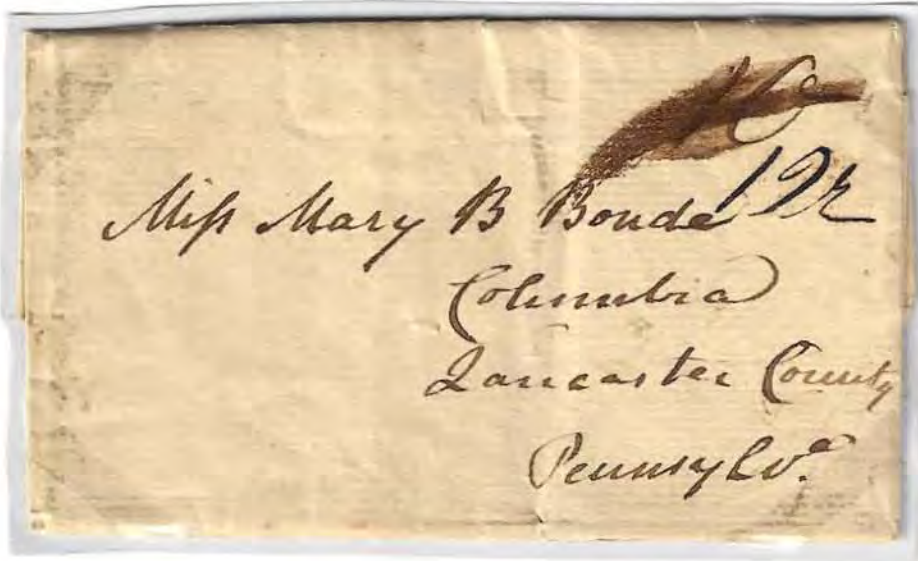 Miſs Mary B Boude
Columbia
Lancaster County
Pennsylvᵃ.